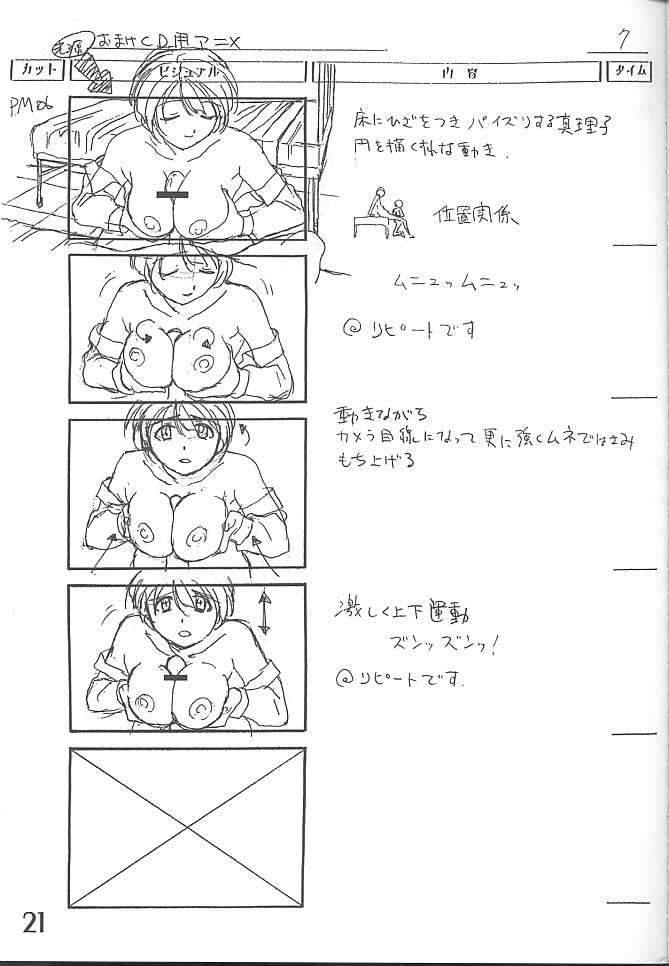 光源
おまけCD用アニメ
7
カット
ビジュアル
内容
タイム
PM06
床にひざをつき パイズリする真理子
円を描く様な動き.
位置関係
ムニュッムニュッ
@リピートです
動きながら
カメラ目線になって更に強くムネではさみ
もち上げる
激しく上下運動
ズンッズンッ!
@リピートです.
21